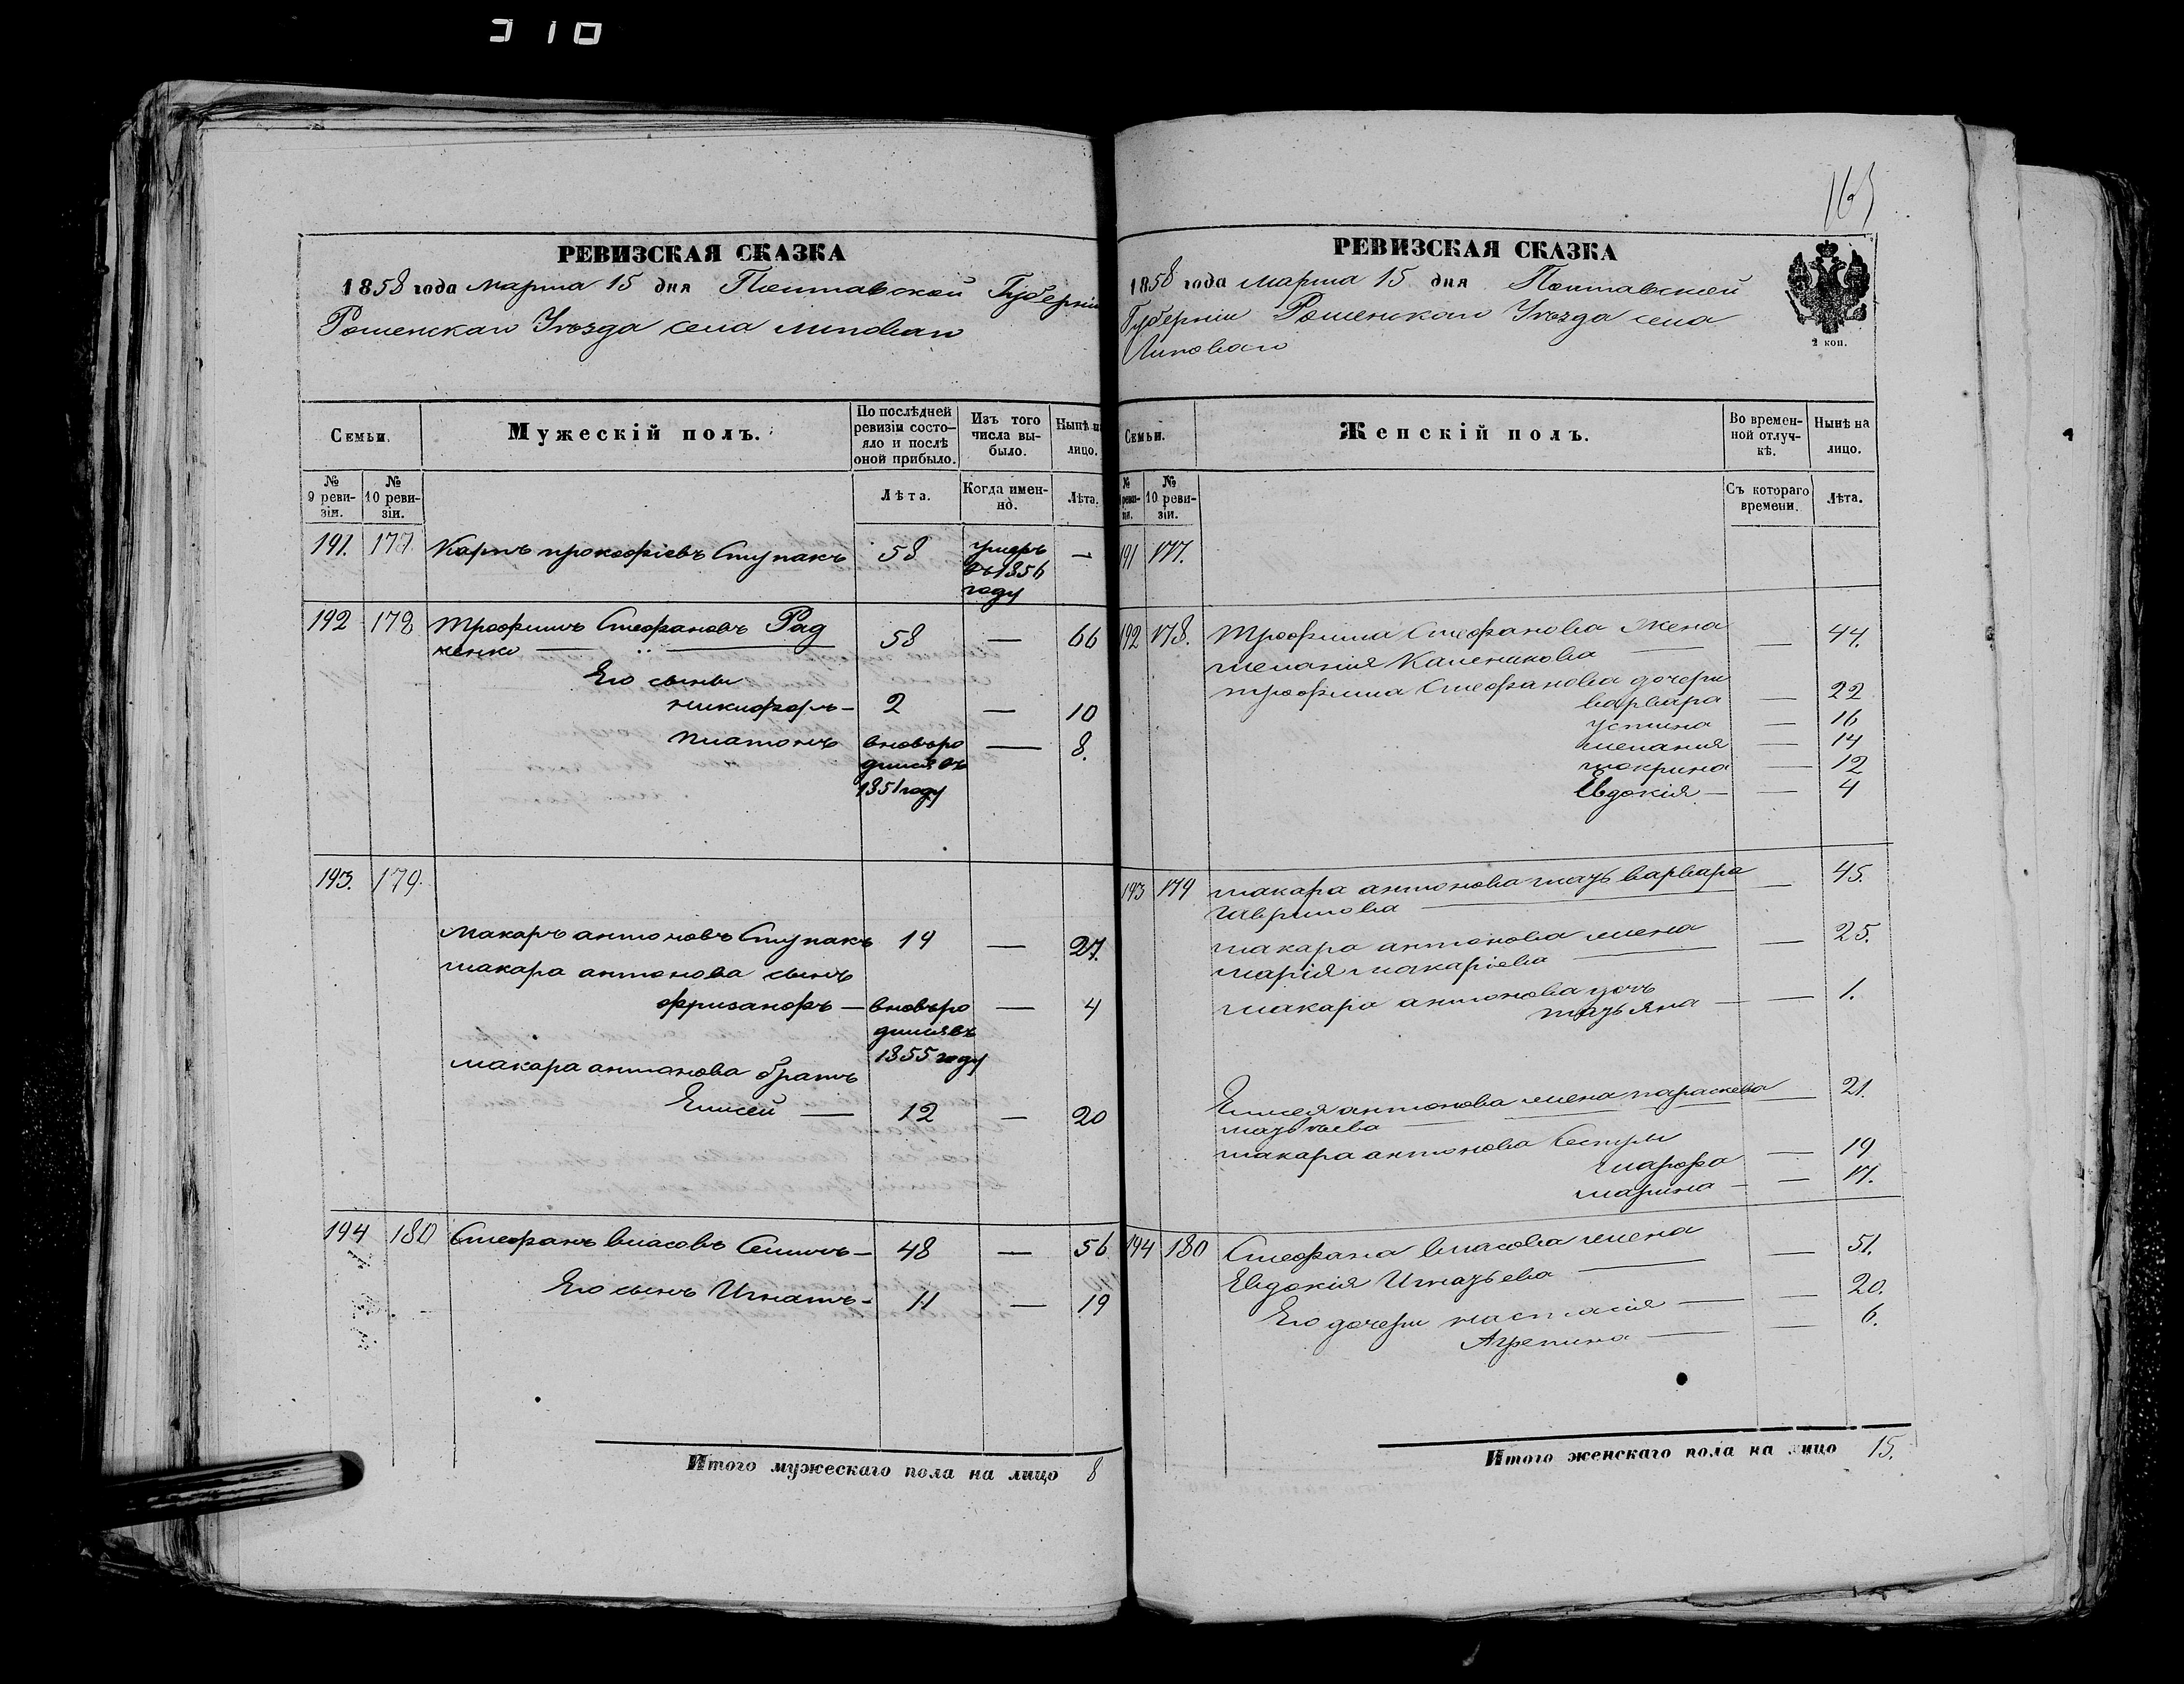 310
РЕВИЗСКАЯ СКАЗКА
1858 года марта 15 дня Полтавской Губерніи
Роменскаго Уѣзда села Липоваго
Семьи.
Мужескій полъ.
По послѣдней ревизіи состояло и послѣ оной прибыло.
Изъ того числа выбыло.
Нынѣ на лицо.
№ 9 ревизіи.
№ 10 ревизіи.
Лѣта.
Когда именно.
Лѣта.
191. 177. Карпъ прокофіевъ Ступакъ 58 умеръ въ 1856 году —
192 178 Трофимъ Стефановъ Рад
ченко — 58 — 66
Его сыны
никифоръ — 2 — 10
платонъ вновьро
дился въ
1851 году — 8.
193. 179.
Макаръ антоновъ Ступакъ 19 — 27.
макара антонова сынъ
фризанфъ — вновьро
дился въ
1855 году — 4
Макара антонова братъ
Елисей — 12 — 20
194 180 Стефанъ власовъ — 48 — 56
Его сынъ Игнатъ — 11 — 19
Итого мужескаго пола на лицо 8
165
РЕВИЗСКАЯ СКАЗКА
1858 года марта 15 дня Полтавской
Губерніи Роменскаго Уѣзда села
Липоваго
2 коп.
Семьи.
Женскій полъ.
Во временной отлучкѣ.
Нынѣ на лицо.
№ 9 ревизіи.
№ 10 ревизіи.
Съ котораго времени.
Лѣта.
191 177.
192 178. Трофима Стефанова жена
меланія Каленикова — — 44.
трофима Стефанова дочери
варвара — 22
устина — 16
меланія — 14
макрина — 12
Евдокія — — 4
193 179 макара антонова мать варвара
Гаврилова — — 45.
макара антонова жена
марія макаріева — — 25.
макара антонова дочь
татьяна — — 1.
Елисея антонова жена параскева
— — 21.
макара антонова Сестры
марфа — 19
марина — — 17.
194 180 Стефана власова жена
Евдокія Игнатьева — — 51.
Его дочери настасія — — 20.
Агрепина — — 6.
Итого женскаго пола на лицо 15.